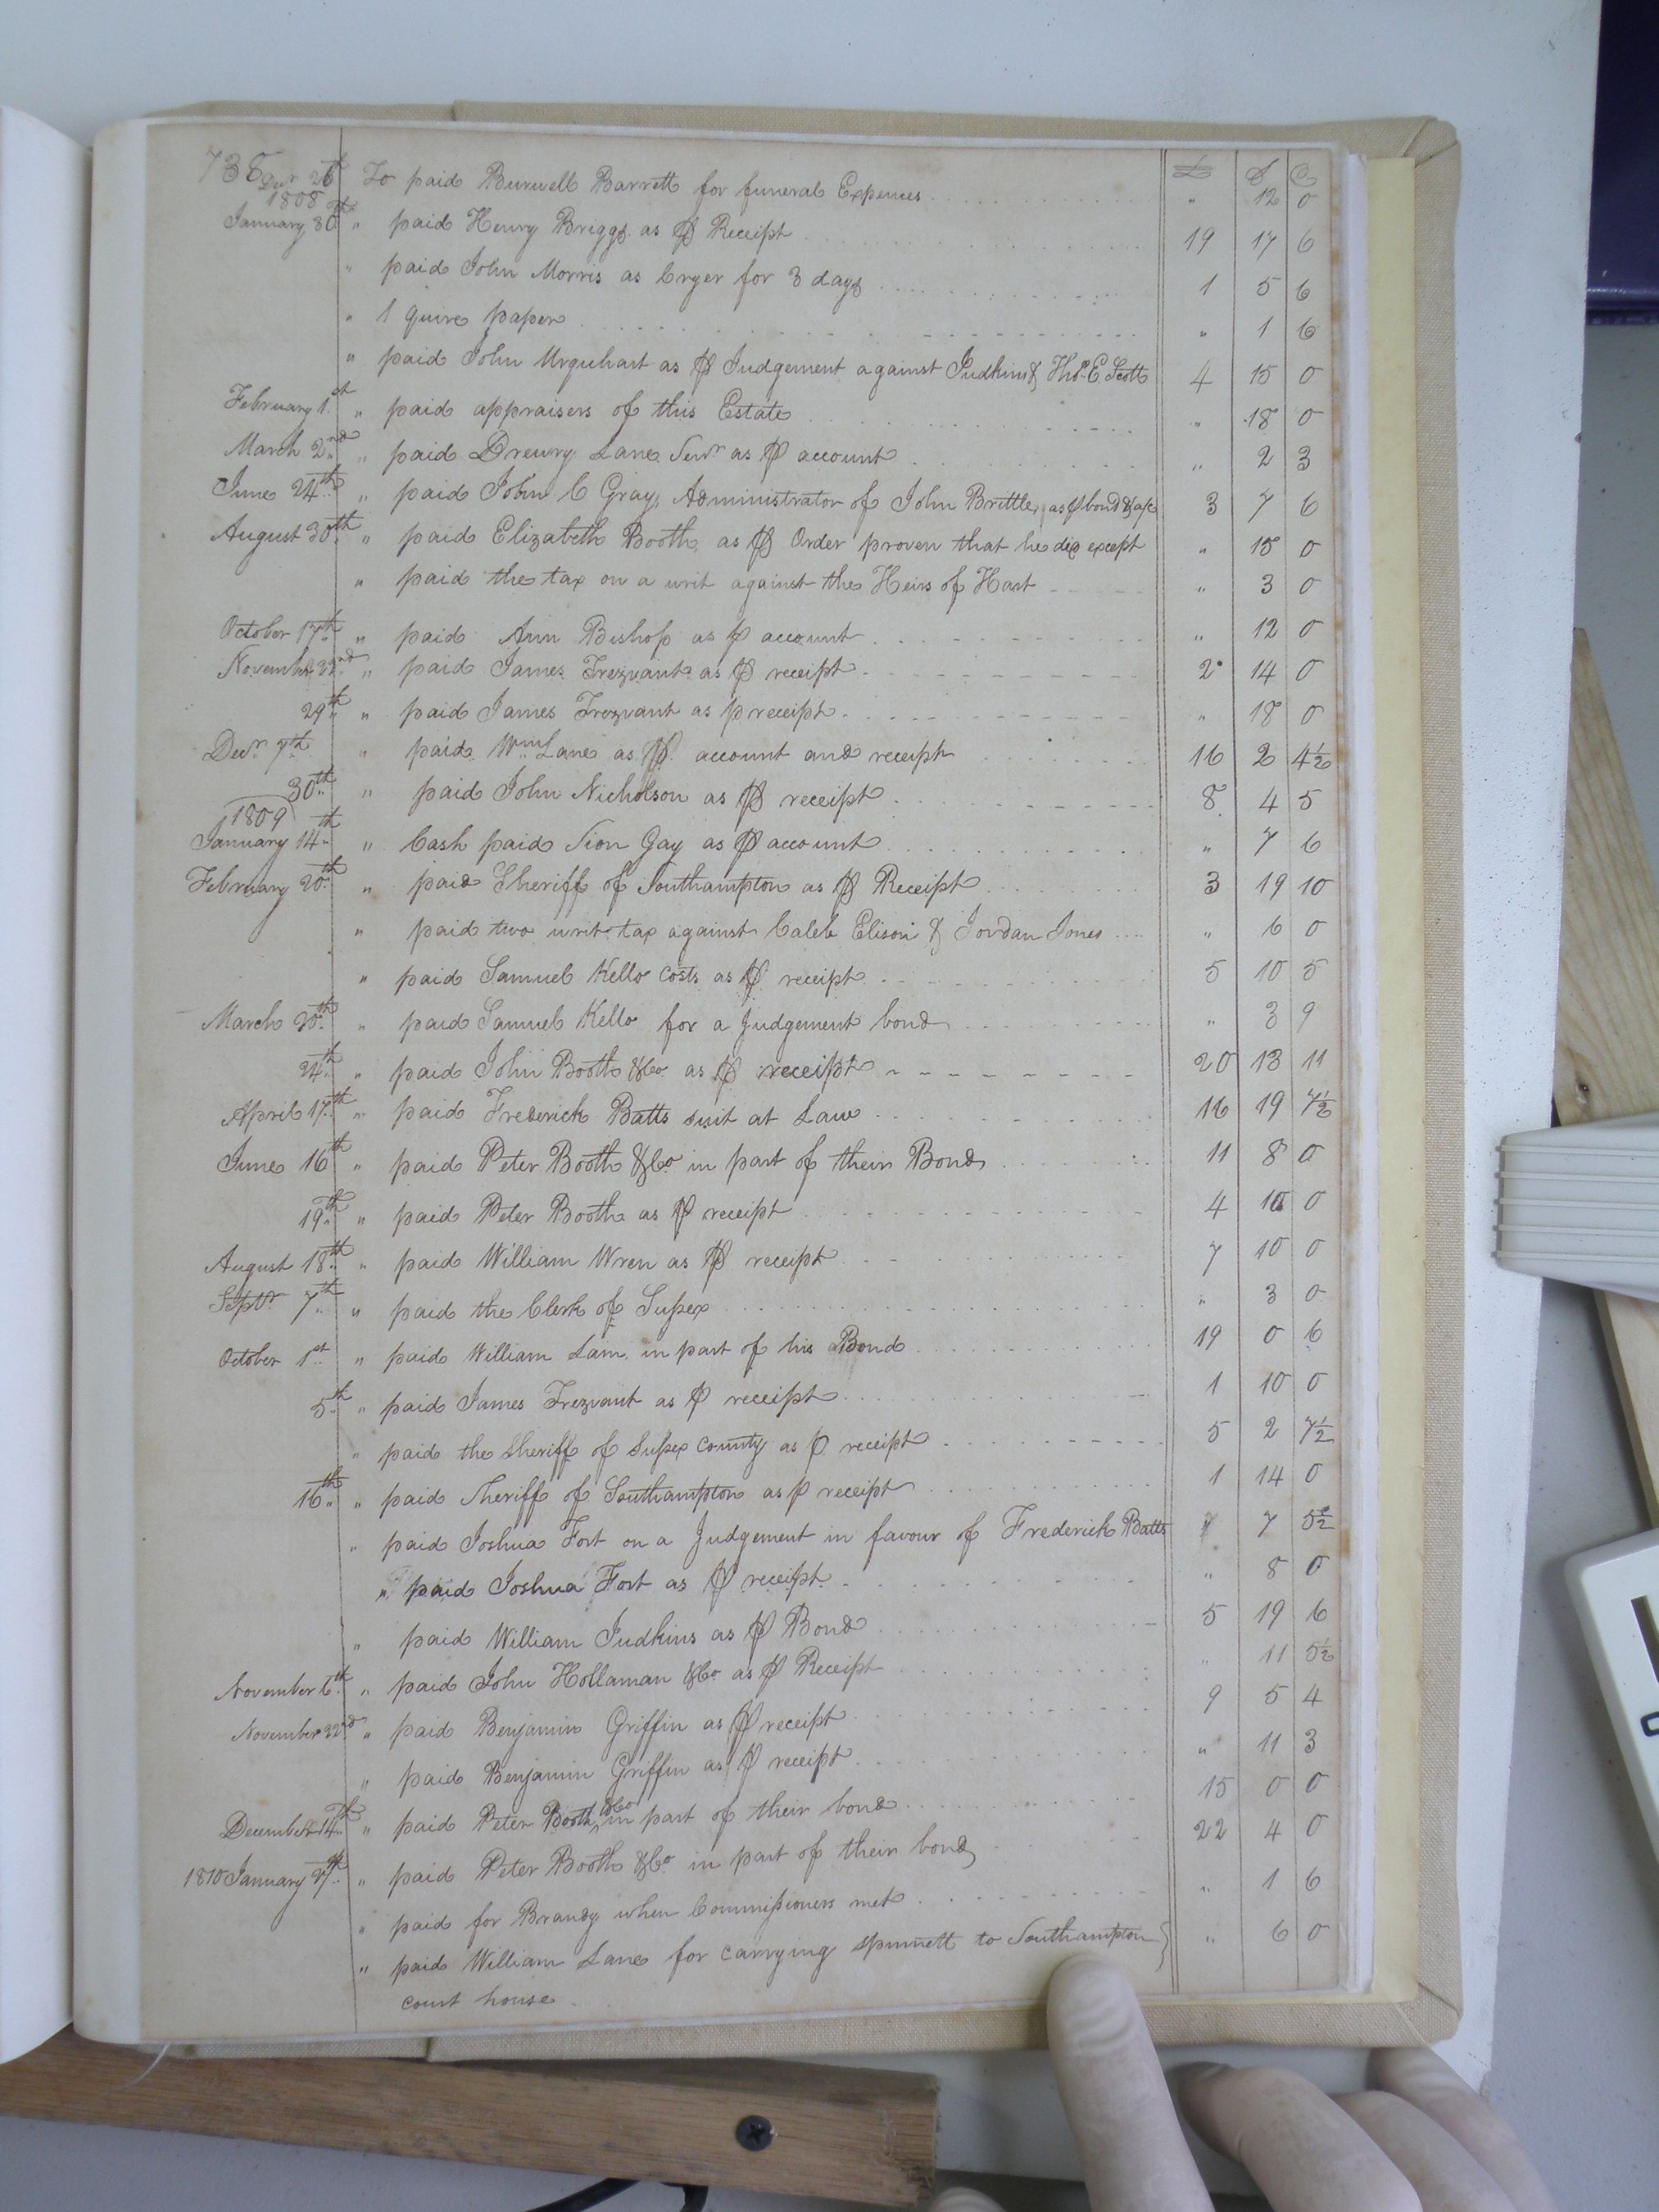 738
Decr. 26th To paid Burwell Barrett for funeral Expences " 12 0
1808
January 30th " paid Henry Briggs as ⅌ Receipt 19 17 6
" paid John Morris as Cryer for 3 days 1 5 6
" 1 quire paper " 1 6
" paid John Urquhart as ⅌ Judgement against Judkins & Thos. E. Scott 4 15 0
February 1st " paid appraisers of this Estate " 18 0
March 2nd " paid Drewry Lane Senr as ⅌ account " 2 3
June 24th " paid John C Gray, Administrator of John Brittle, as ⅌ bond & a/c 3 7 6
August 30th " paid Elizabeth Booth as ⅌ Order proven that he die except " 15 0
" paid the tax on a writ against the Heirs of Hart " 3 0
October 17th " paid Ann Bishop as ⅌ account " 12 0
November 22nd " paid James Trezvant as ⅌ receipt 2 14 0
29th " paid James Trezvant as ⅌ receipt " 18 0
Decr. 7th " paid Wm Lane as ⅌ account and receipt 16 2 4½
30th " paid John Nicholson as ⅌ receipt 8 4 5
1809
January 14th " Cash paid Sion Gay as ⅌ account " 7 6
February 20th " paid Sheriff of Southampton as ⅌ Receipt 3 19 10
" paid two writ tax against Caleb Elison & Jordan Jones " 6 0
" paid Samuel Kello costs as ⅌ receipt 5 10 5
March 20th " paid Samuel Kello for a Judgement bond " 3 9
24th " paid John Booth &Co as ⅌ receipt 20 13 11
April 17th " paid Frederick Batts suit at Law 16 19 7½
June 16th " paid Peter Booth &Co in part of their Bond 11 8 0
19th " paid Peter Booth as ⅌ receipt 4 0
August 18th " paid William Wren as ⅌ receipt 7 10 0
Septr 7th " paid the Clerk of Sussex " 3 0
October 1st " paid William Lain in part of his Bond 19 0 6
5th " paid James Trezvant as ⅌ receipt 1 10 0
" paid the sheriff of Sussex County as ⅌ receipt 5 2 7½
16th " paid Sheriff of Southampton as ⅌ receipt 1 14 0
" paid Joshua Fort on a Judgement in favour of Frederick Batts 7 5½
" paid Joshua Fort as ⅌ receipt " 8 0
" paid William Judkins as ⅌ Bond 5 19 6
November 6th " paid John Hollaman &Co as ⅌ Receipt " 11 5½
November 22d " paid Benjamin Griffin as ⅌ receipt 9 5 4
" paid Benjamin Griffin as ⅌ receipt " 11 3
December 14th " paid Peter Booth &Co in part of their bond 15 0 0
1810 January 27th " paid Peter Booth &Co in part of their bond 22 4 0
" paid for Brandy when Commissioners met " 1 6
" paid William Lane for carrying spinnett to Southampton } " 6 0
court house